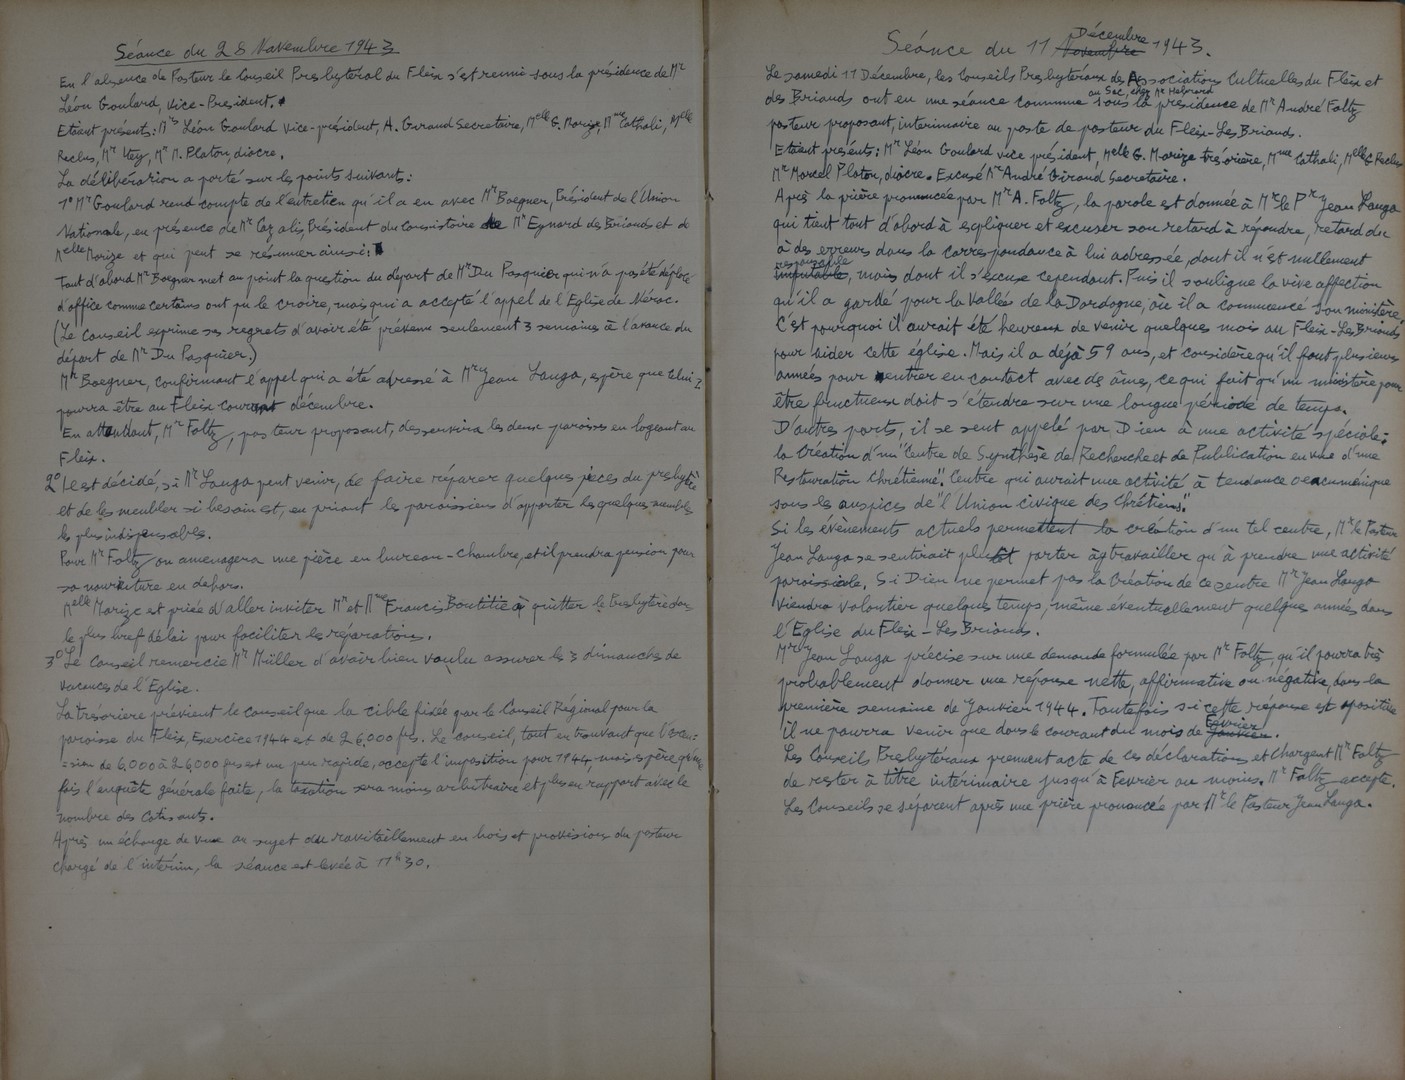 Séance du 28 Novembre 1943
En l'absence de Pasteur le Conseil Presbytéral du Fleix s'est réuni sous la présidence de Mr
Léon Goulard, Vice-President.
Etaient présents: Mrs Léon Goulard vice-président, A. Giraud Secretaire, Melle G. Morize, Mme Cathali, Melle
Reclus, Mr Mr M. Platon, diacre.
La délibération a porté sur les points suivants:
1° Mr Goulard rend compte de l'entretien qu'il a eu avec Mr Boegner, Président de l'Union
Nationale, en présence de Mr Cazalis, Président du Consistoire de Mr Eynard des Briands et de
Melle Morize et qui peut se résumer ainsi:
Tout d'abord Mr Boegner met au point la question du départ de Mr Du Pasquier qui n'a pas été déplacé
d'office comme certains ont pu le croire, mais qui a accepté l'appel de l'Eglise de Nérac.
(Le Conseil exprime ses regrets d'avoir été prévenu seulement 3 semaines à l'avance du
départ de Mr Du Pasquier.)
Mr Boegner, confirmant l'appel qui a été adressé à Mr Jean Lauga, espère que celui-?
pourra être au Fleix courant décembre.
En attendant, Mr Foltz, pasteur proposant, desservira les deux paroisses en logeant au
Fleix.
2° Il est décidé, si Mr Lauga peut venir, de faire réparer quelques pièces du presbytère
et de les meubler si besoin est, en priant les paroissiens d'apporter les quelques meubles
les plus indispensables.
Pour Mr Foltz on amenagera une pièce en bureau-chambre, et il prendra pension pour
sa nourriture en dehors.
Melle Morize est priée d'aller inviter Mr et Mme Francis à quitter le Presbytère dans
le plus bref délai pour faciliter les réparations.
3° Le Conseil remercie Mr Müller d'avoir bien voulu assurer les 3 dimanches de
vacances de l'Eglise.
La trésorière prévient le conseil que la cible fixée par le Conseil Régional pour la
paroisse du Fleix, Exercice 1944 est de 26.000 frs. Le conseil, tout en trouvant que l'ascen=
=sion de 6.000 à 26.000 frs est un peu rapide, accepte l'imposition pour 1944 mais espère qu'une
fois l'enquête générale faite, la taxation sera moins arbitraire et plus en rapport avec le
nombre des cotisants.
Après un échange de vues au sujet du ravitaillement en bois et provisions du pasteur
chargé de l'intérim, la séance est levée à 11h30.
Séance du 11 Novembre Décembre 1943.
Le samedi 11 Décembre, les Conseils Presbytéraux des Associations Cultuelles du Fleix et
des Briands ont eu une séance commune au Sac, chez Mr sous la présidence de Mr André Foltz
pasteur proposant, intérimaire au poste de pasteur du Fleix-Les Briands.
Etaient présents: Mr Léon Goulard vice président, Melle G. Morize trésorière, Mme Cathali, Melle G Reclus
Mr Marcel Platon, diacre. Excusé Mr André Giraud Secretaire.
Après la prière prononcée par Mr A. Foltz, la parole est donnée à Mr le Pr Jean Lauga
qui tient tout d'abord à expliquer et excuser son retard à répondre, retard du
à des erreurs dans la correspondance à lui adressée, dont il n'est nullement
imputable responsable, mais dont il s'excuse cependant. Puis il souligne la vive affection
qu'il a gardé pour la vallée de la Dordogne, où il a commencé son ministère.
C'est pourquoi il aurait été heureux de venir quelques mois au Fleix-Les Briands
pour aider cette église. Mais il a déjà 59 ans, et considère qu'il faut plusieurs
années pour entrer en contact avec des âmes, ce qui fait qu'un ministère pour
être fructueux doit s'étendre sur une longue période de temps.
D'autres parts, il se sent appelé par Dieu à une activité spéciale:
la création d'un "Centre de Synthèse de Recherche et de Publication en vue d'une
Restauration Chrétienne". Centre qui aurait une activité à tendance oeacuménique
sous les auspices de "l'Union civique des Chrétiens".
Si les évènements actuels permettent la création d'un tel centre, Mr le Pasteur
Jean Lauga se sentirait plutôt porter à y travailler qu'à prendre une activité
paroissiale. Si Dieu ne permet pas la création de ce centre Mr Jean Lauga
viendra volontier quelques temps, même éventuellement quelques années dans
l'Eglise du Fleix-Les Briands.
Mr Jean Lauga précise sur une demande formulée par Mr Foltz, qu'il pourra très
probablement donner une réponse nette, affirmative ou négative, dans la
première semaine de Janvier 1944. Toutefois si cette réponse est positive
il ne pourra venir que dans le courant du mois de Janvier Février.
Les Conseils Presbytéraux prennent acte de ces déclarations et chargent Mr Foltz
de rester à titre intérimaire jusqu'à Fevrier au moins. Mr Foltz accepte.
Les Conseils se séparent après une prière prononcée par Mr le Pasteur Jean Lauga.